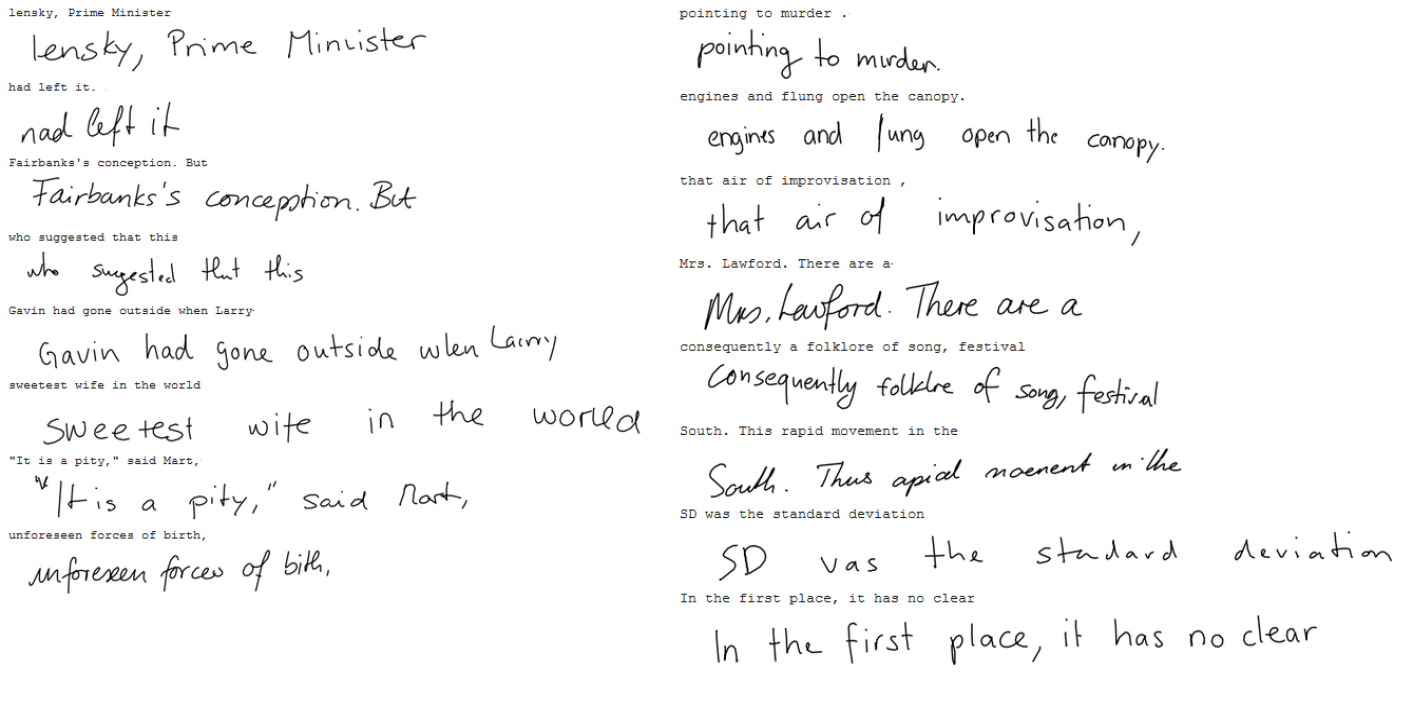 lensky, Prime Minister
lensky, Prime Miniister
had left it.
nad left it
Fairbanks's conception. But
Fairbanks's concepption. But
who suggested that this
who sugested that this
Gavin had gone outside when Larry
Gavin had gone outside wlen Larry
sweetest wife in the world
sweetest wife in the world
"It is a pity," said Mart,
"It is a pity," said Mart,
unforeseen forces of birth,
unforeseen forces of bith,
pointing to murder .
pointing to murder.
engines and flung open the canopy.
engines and lung open the canopy.
that air of improvisation ,
that air of improvisation,
Mrs. Lawford. There are a
Mrs. Lawford. There are a
consequently a folklore of song, festival
Consequently folklre of song, festival
South. This rapid movement in the
South. Thus apial moenent in the
SD was the standard deviation
SD vas the stadard deviation
In the first place, it has no clear
In the first place, it has no clear